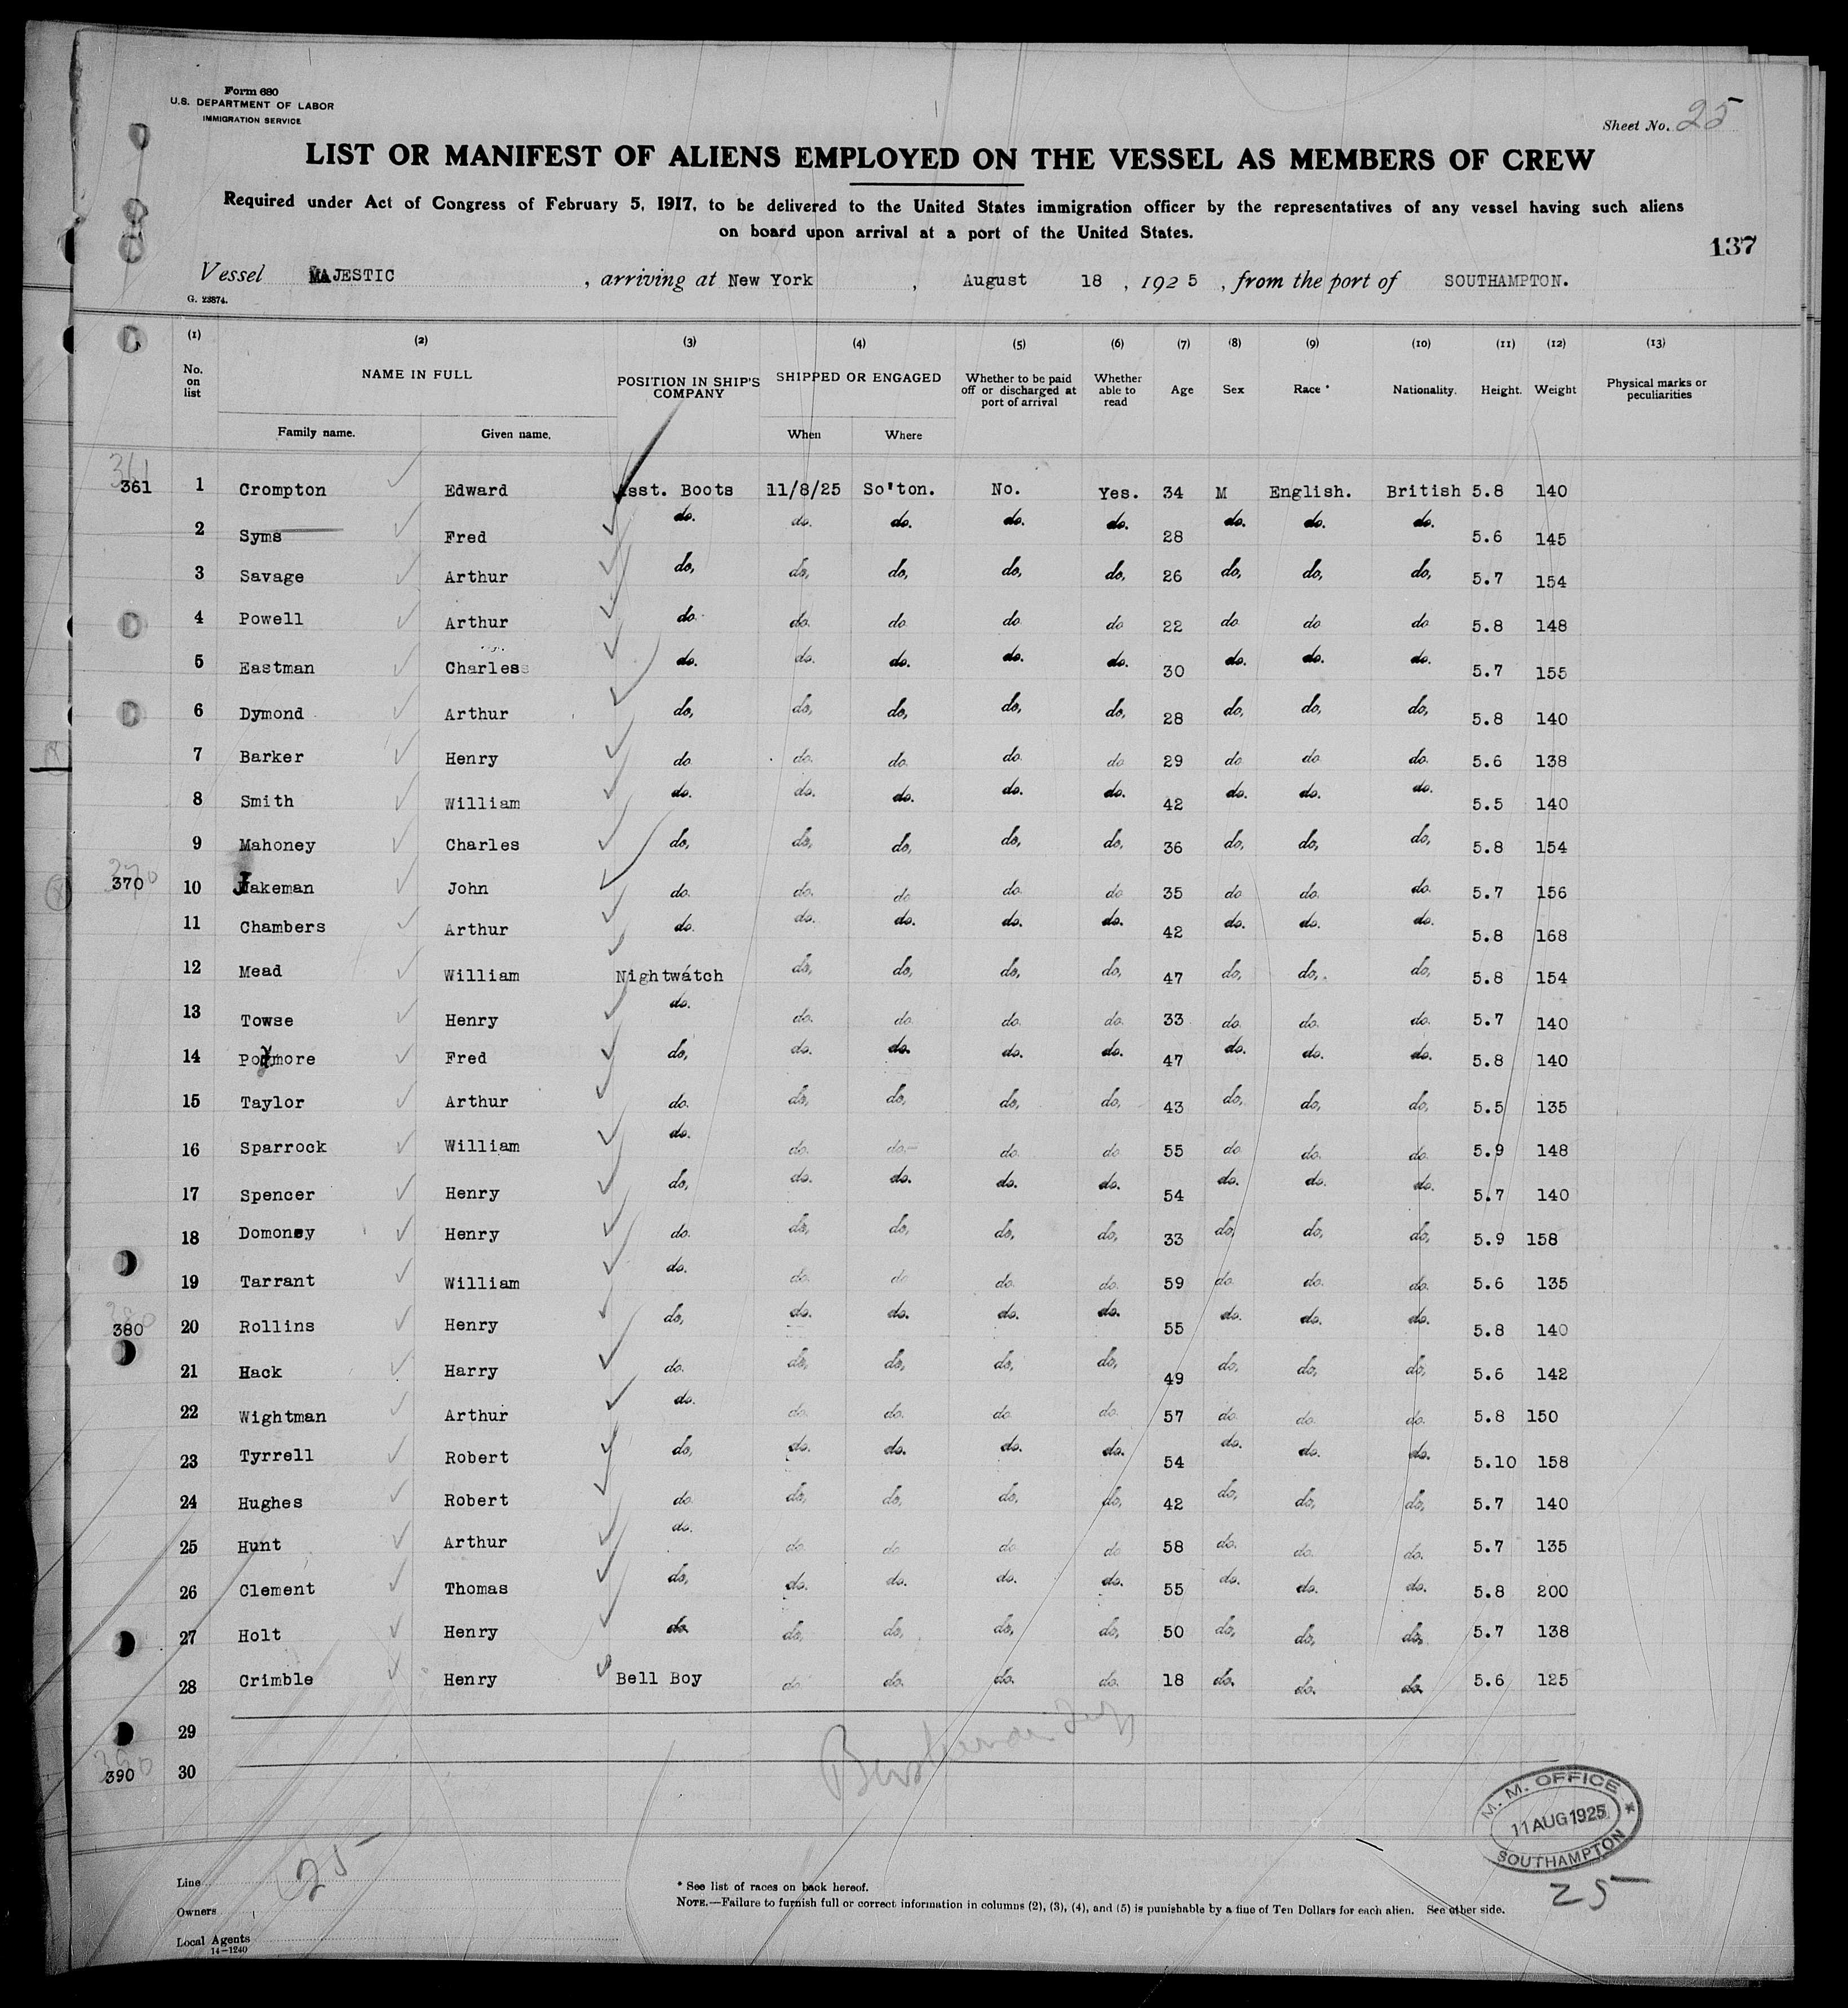 Form 680
U.S. DEPARTMENT OF LABOR
IMMIGRATION SERVICE
Sheet No. 25
LIST OR MANIFEST OF ALIENS EMPLOYED ON THE VESSEL AS MEMBERS OF CREW
Required under Act of Congress of February 5, 1917, to be delivered to the United States immigration officer by the representatives of any vessel having such aliens
on board upon arrival at a port of the United States.
137
Vessel MAJESTIC , arriving at New York , August 18 , 1925 , from the port of SOUTHAMPTON.
G. 23874.
(1) (2) (3) (4) (5) (6) (7) (8) (9) (10) (11) (12) (13)
No. on list NAME IN FULL POSITION IN SHIP'S COMPANY SHIPPED OR ENGAGED Whether to be paid off or discharged at port of arrival Whether able to read Age Sex Race * Nationality. Height. Weight Physical marks or peculiarities
Family name. Given name. When Where
361 1 Crompton Edward Asst. Boots 11/8/25 So'ton. No. Yes. 34 M English. British 5.8 140
2 Syms Fred do. do. do. do. do. 28 do. do. do. 5.6 145
3 Savage Arthur do, do, do, do, do, 26 do, do, do, 5.7 154
4 Powell Arthur do. do. do do do 22 do do do 5.8 148
5 Eastman Charles do. do. do. do. do. 30 do. do. do. 5.7 155
6 Dymond Arthur do, do, do, do, do, 28 do, do, do, 5.8 140
7 Barker Henry do do. do. do do 29 do do do. 5.6 138
8 Smith William do. do. do. do. do. 42 do. do. do. 5.5 140
9 Mahoney Charles do, do, do, do, do, 36 do, do, do, 5.8 154
370 10 Jakeman John do. do. do do. do 35 do do. do. 5.7 156
11 Chambers Arthur do. do. do. do. do. 42 do. do. do. 5.8 168
12 Mead William Nightwatch do, do, do, do, 47 do, do, do, 5.8 154
13 Towse Henry do. do. do. do. do. 33 do. do. do. 5.7 140
14 Fred do, do. do. do. do. 47 do. do. do. 5.8 140
15 Taylor Arthur do. do, do, do, do, 43 do, do, do, 5.5 135
16 Sparrock William do. do. do. do. do 55 do do. do. 5.9 148
17 Spencer Henry do, do. do. do. do. 54 do. do. do. 5.7 140
18 Domoney Henry do. do, do, do, do, 33 do, do, do, 5.9 158
19 Tarrant William do. do. do do. do. 59 do. do. do. 5.6 135
380 20 Rollins Henry do, do. do. do. do. 55 do. do. do. 5.8 140
21 Hack Harry do. do, do, do, do, 49 do, do, do, 5.6 142
22 Wightman Arthur do. do. do. do. do. 57 do. do. do. 5.8 150
23 Tyrrell Robert do, do. do. do. do. 54 do. do. do. 5.10 158
24 Hughes Robert do. do, do, do, do, 42 do, do, do, 5.7 140
25 Hunt Arthur do. do. do. do. do 58 do. do. do. 5.7 135
26 Clement Thomas do, do. do. do. do. 55 do. do. do. 5.8 200
27 Holt Henry do. do, do, do, do, 50 do, do, do, 5.7 138
28 Crimble Henry Bell Boy do do. do. do. 18 do. do. do. 5.6 125
29
390 30
M. M. OFFICE
11 AUG 1925
SOUTHAMPTON
25
25
Line
Owners
Local Agents
14-1240
* See list of races on back hereof.
NOTE.—Failure to furnish full or correct information in columns (2), (3), (4), and (5) is punishable by a fine of Ten Dollars for each alien. See other side.